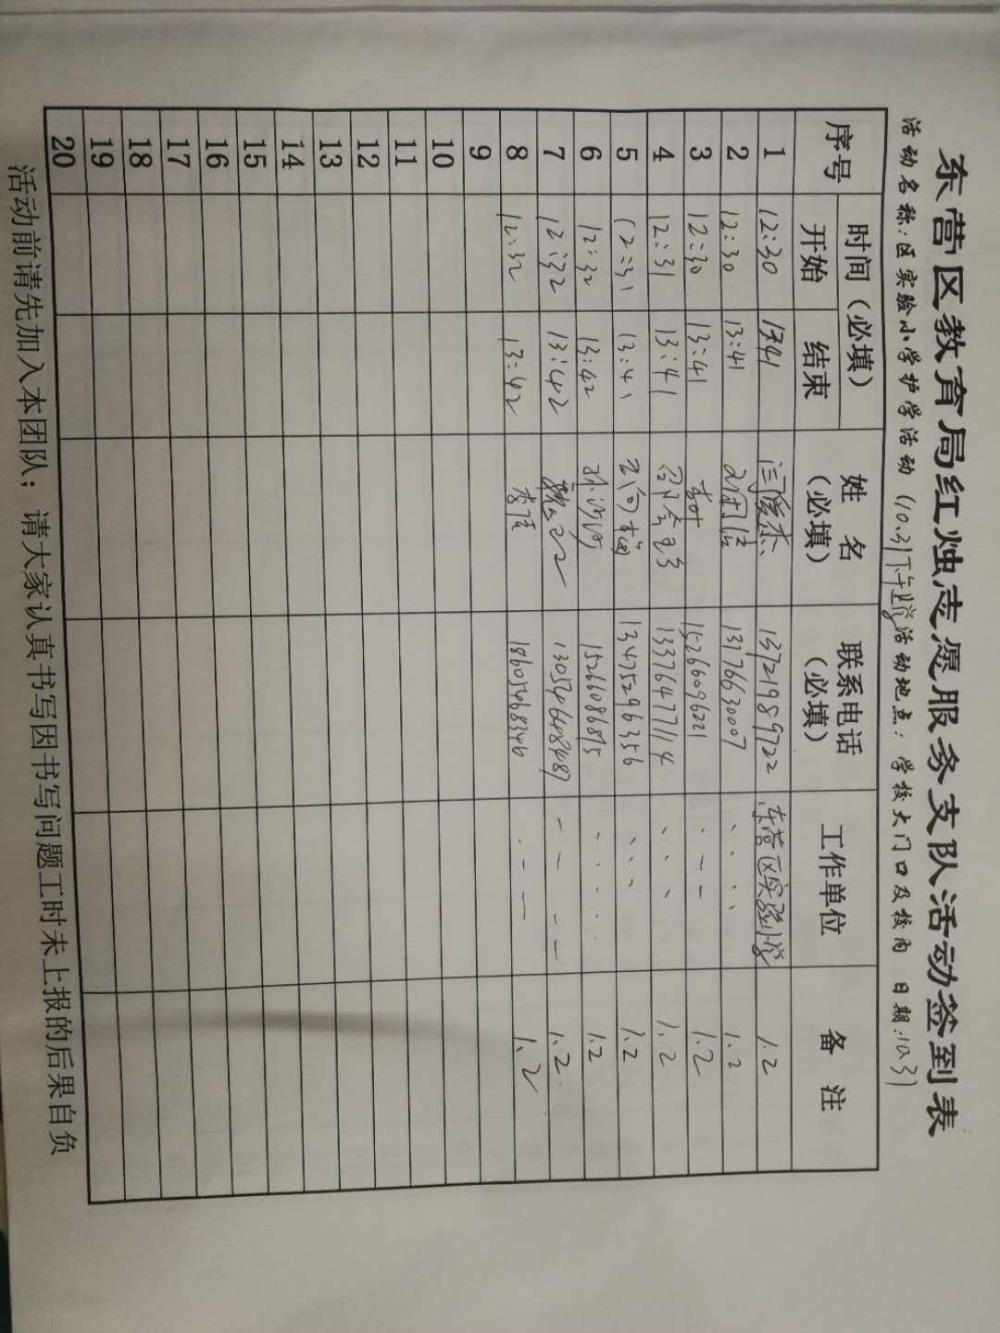 东营区教育局红烛志愿服务支队活动签到表
活动名称:区实验小学护学活动(10.31下午上学)活动地点:学校大门口及校内 日期:10.31
序号 时间(必填) 姓名(必填) 联系电话(必填) 工作单位 备注
开始 结束
1 12:30 13:41 13721989722 东营区实验小学 1.2
2 12:30 13:41 13176630007 、、、、 1.2
3 12:30 13:41 15266096221 1.2
4 12:31 13:41 13376477114 、、、 1.2
5 12:31 13:41 13475296356 、、、 1.2
6 12:32 13:42 15266086815 、、、、 1.2
7 12:32 13:42 1.2
8 12:32 13:42 李佳 18605468346 1.2
9
10
11
12
13
14
15
16
17
18
19
20
活动前请先加入本团队;请大家认真书写因书写问题工时未上报的后果自负